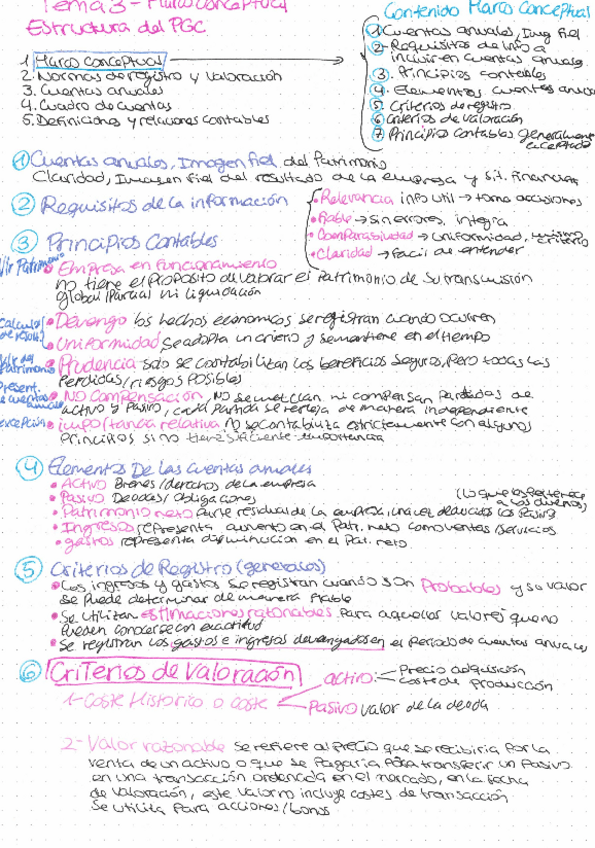 Tema 3 - Marco Conceptual
Estructura del PGC
1 Marco conceptual
2. Normas de registro y valoración
3. Cuentas anuales
4. Cuadro de cuentas
5. Definiciones y relaciones contables
Contenido Marco Conceptual
1 Cuentas anuales, Img fiel
2- Requisitos de info a
incluir en cuentas anuales
3. Principios contables
4. Elementos cuentas anuales
5 Criterios de registro
6 Criterios de valoración
7 Principios contables generalmente
aceptado
1 Cuentas anuales, Imagen fiel del Patrimonio
Claridad, Imagen fiel del resultado de la empresa y sit. financiera
2 Requisitos de la información
• Relevancia info util → toma decisiones
• Fiable → sin errores, integra
• Comparabilidad → Uniformidad, mismo criterio
• Claridad → facil de entender
3 Principios Contables
Vlr Patrimonio
• Empresa en funcionamiento
no tiene el proposito de valorar el Patrimonio de su transmisión
global/Parcial ni liquidación
Calculo de result.
• Devengo los hechos economicos se registran cuando ocurren
• Uniformidad, se adopta un criterio y se mantiene en el tiempo
Vlr del Patrimonio
• Prudencia solo se contabilitan los beneficios seguros, Pero todas las
Perdidas/riesgos Posibles
Present. de cuentas anuales
• No compensación, No se mezclan ni compensan Partidas de
activo y Pasivo, cada Partida se refleja de manera independiente
excepción
• importancia relativa no se contabiliza estrictamente con algunos
Principios si no tiene suficiente importancia
4 Elementos De las Cuentas anuales
• Activo Bienes/derechos de la empresa
• Pasivo Deudas/Obligaciones
(Lo que les pertenece
a los dueños)
• Patrimonio neto Parte residual de la empresa, una vez deducidos los Pasivos
• Ingresos representa aumento en el Patr. neto como ventas/servicios
• gastos representa disminucion en el Pat. neto
5 Criterios de Registro (generales)
• Los ingresos y gastos se registran cuando son Probables y su valor
se Puede determinar de manera fiable
• Se utilizan estimaciones razonables Para aquellos valores que no
Pueden conocerse con exactitud
• Se registran los gastos e ingresos devengados en el periodo de cuentas anuales
6 Criterios de Valoración
1- Coste Historico o coste
activo: Precio adquisición
coste de producción
Pasivo valor de la deuda
2- Valor razonable se refiere al Precio que se recibiria Por la
venta de un activo o que se Pagaria Para transferir un Pasivo
en una transacción ordenada en el mercado, en la fecha
de valoración, este valor no incluye costes de transacción
Se utilita Para acciones/bonos